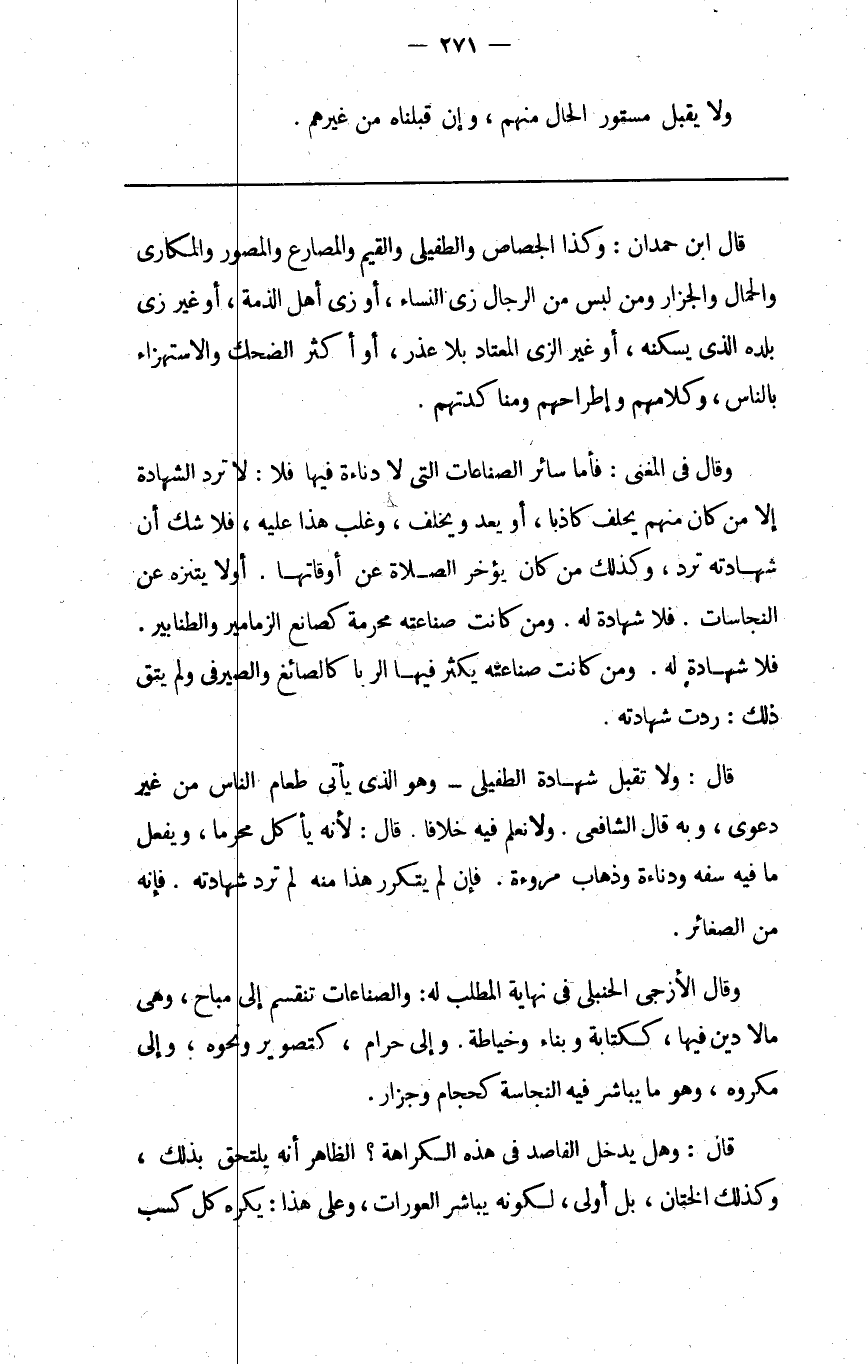 — ٢٧١ —
ولا يقبل مستور الحال منهم ، وإن قبلناه من غيرهم .
قال ابن حمدان : وكذا الجصاص والطفيلى والقيم والمصارع والمصور والمكارى
والحمال والجزار ومن لبس من الرجال زى النساء ، أو زى أهل الذمة ، أو غير زى
بلده الذى يسكنه ، أو غير الزى المعتاد بلا عذر ، أو أكثر الضحك والاستهزاء
بالناس ، وكلامهم وإطراحهم ومناكدتهم .
وقال فى المغنى : فأما سائر الصناعات التى لا دناءة فيها فلا : لا ترد الشهادة
إلا من كان منهم يحلف كاذبا ، أو يعد ويخلف ، وغلب هذا عليه ، فلا شك أن
شهادته ترد ، وكذلك من كان يؤخر الصلاة عن أوقاتها . أولا يتنزه عن
النجاسات . فلا شهادة له . ومن كانت صناعته محرمة كصانع الزمامير والطنابير .
فلا شهادة له . ومن كانت صناعته يكثر فيها الربا كالصائغ والصيرفى ولم يتق
ذلك : ردت شهادته .
قال : ولا تقبل شهادة الطفيلى – وهو الذى يأتى طعام الناس من غير
دعوى ، وبه قال الشافعى . ولا نعلم فيه خلافا . قال : لأنه يأكل محرما ، ويفعل
ما فيه سفه ودناءة وذهاب مروءة . فإن لم يتكرر هذا منه لم ترد شهادته . فإنه
من الصغائر .
وقال الأزجى الحنبلى فى نهاية المطلب له : والصناعات تنقسم إلى مباح ، وهى
مالا دين فيها ، ككتابة وبناء وخياطة . وإلى حرام ، كتصوير ونحوه ؛ وإلى
مكروه ، وهو ما يباشر فيه النجاسة كحجام وجزار .
قال : وهل يدخل الفاصد فى هذه الكراهة ؟ الظاهر أنه يلتحق بذلك ،
وكذلك الختان ، بل أولى ، لكونه يباشر العورات ، وعلى هذا : يكره كل كسب